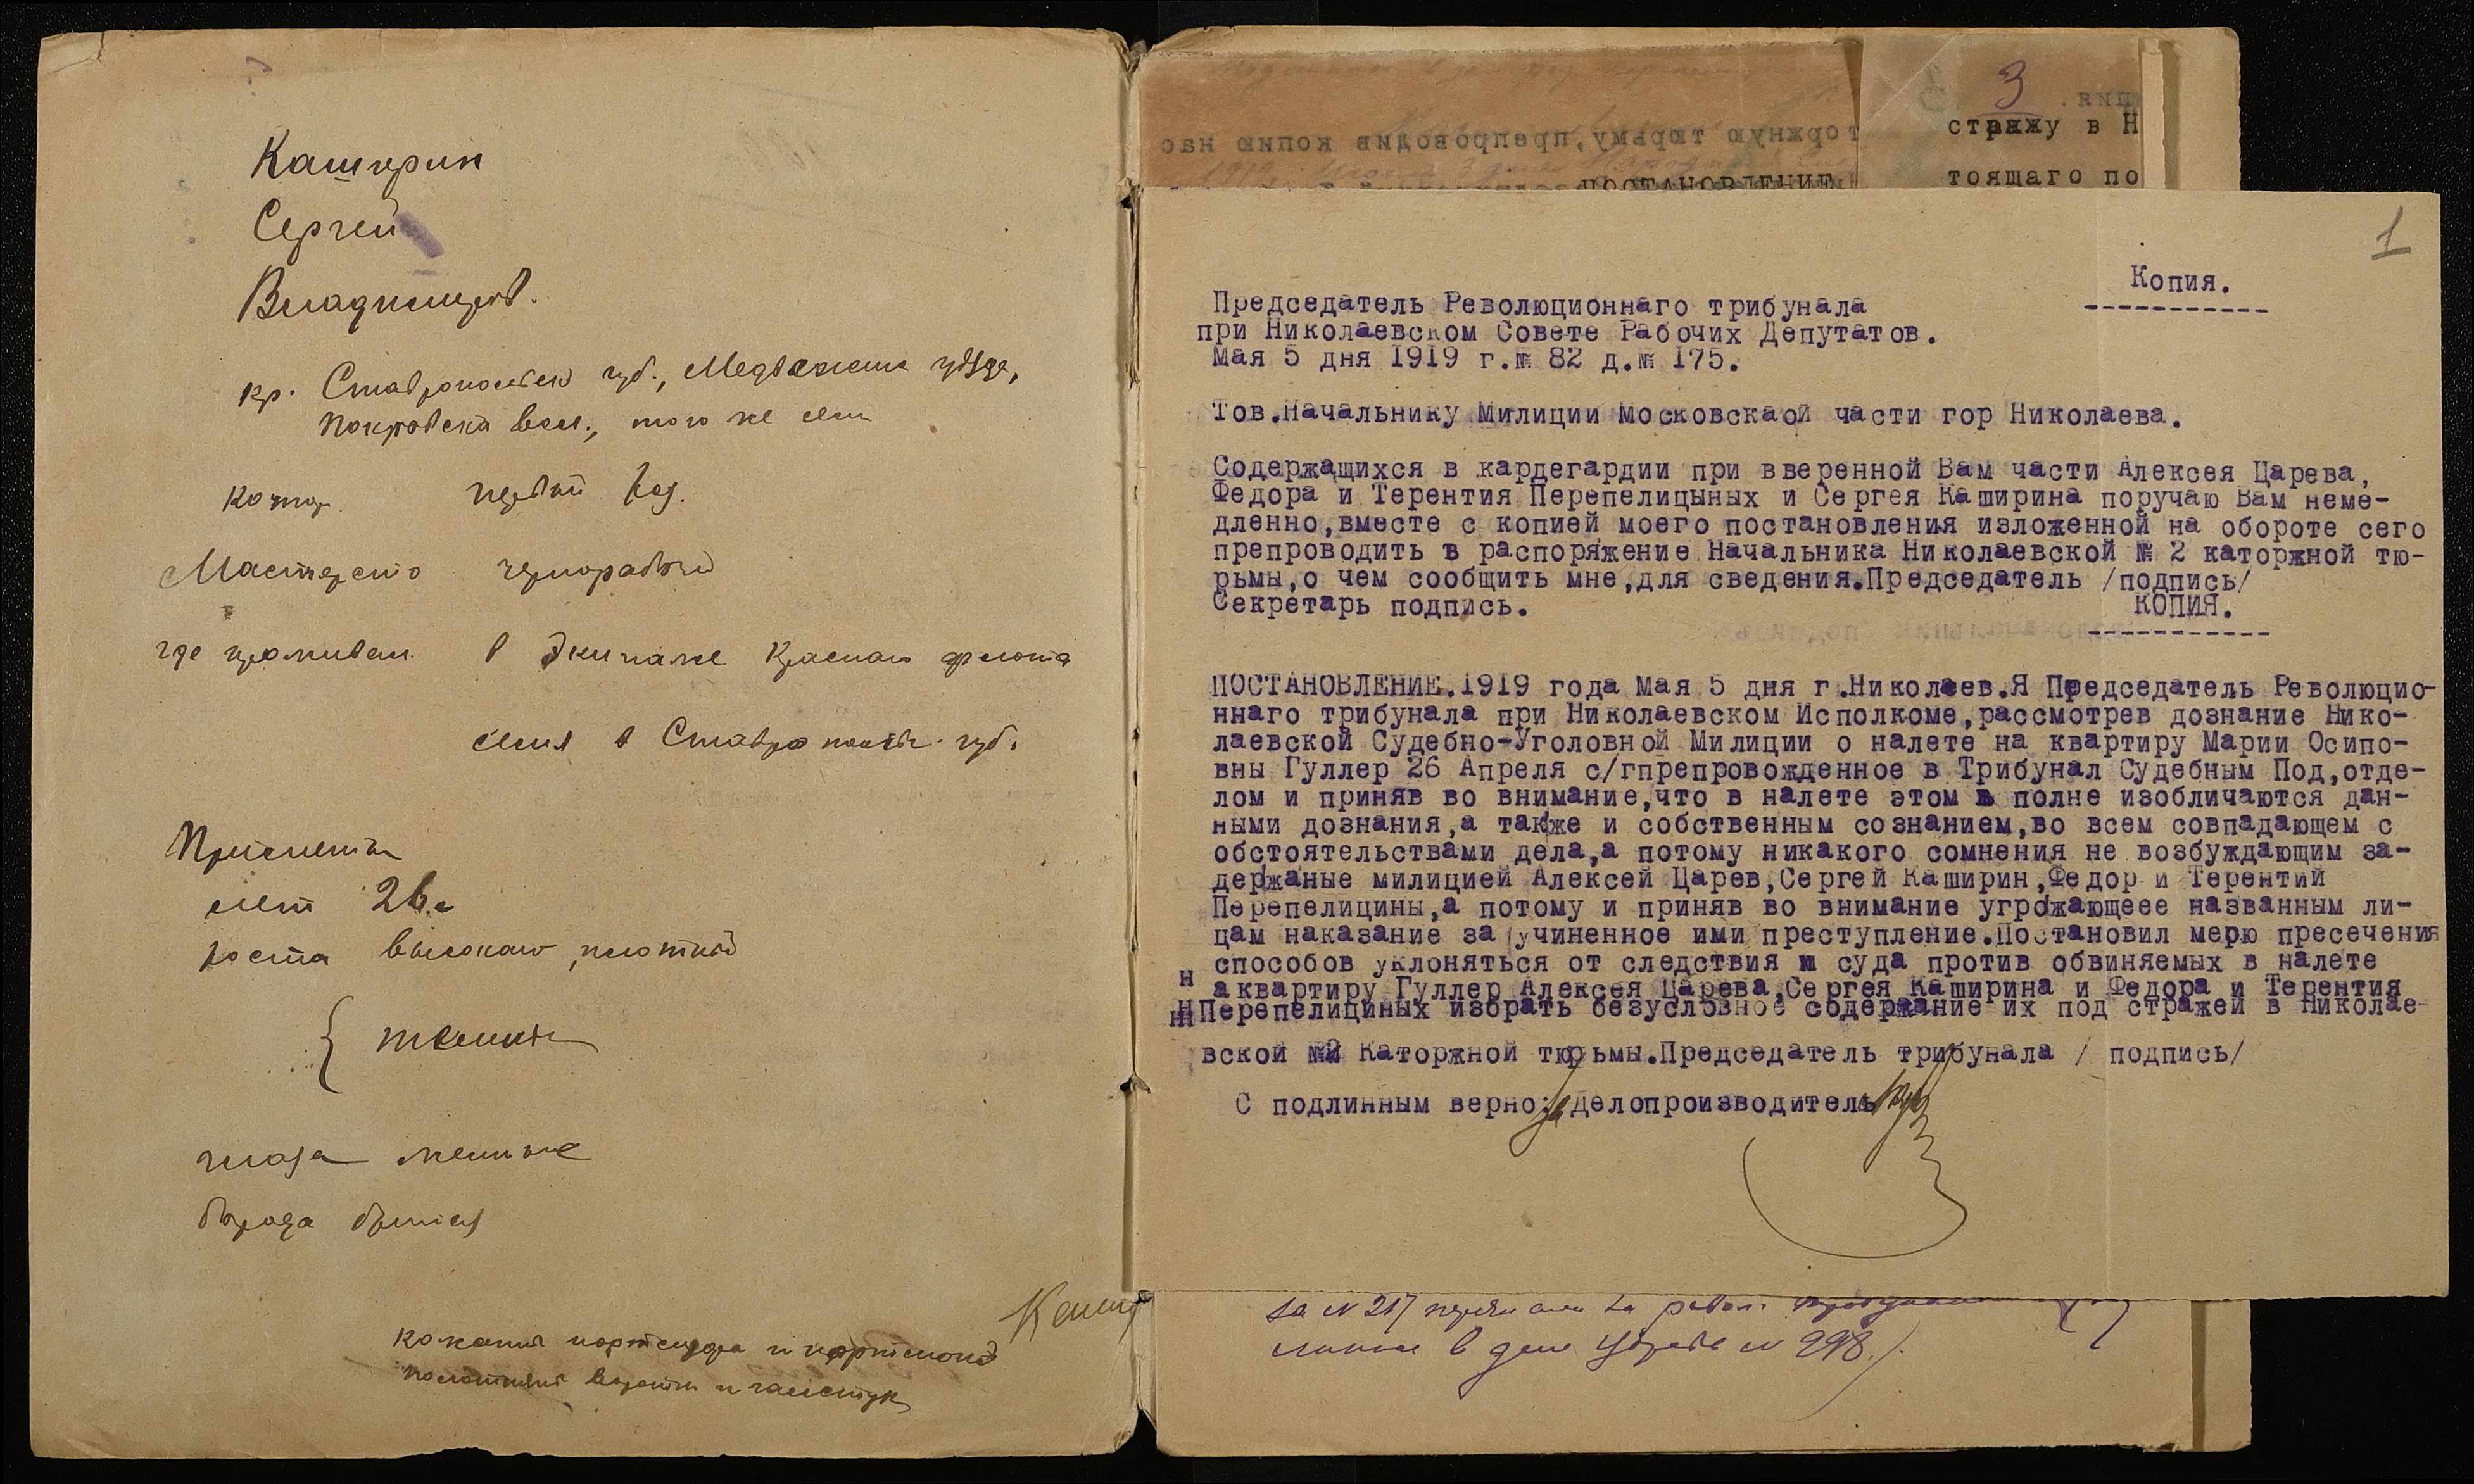 Каширин
Сергей
Владимиров.
кр. Ставропольск губ., Медвежьи уѣзда,
Покровски вол., того же села
катор первый раз.
Мастерство чернорабочий
где проживал в Экипаже Красного флота
семья в Ставрополь. губ.
Приметы
лет 26
роста высокаго, плотный
темные
глаза
борода бритая
Кашир
кожаный портсигар и портмонэ
воротник и галстук
3
стражу в Н
торжную тюрьму,препроводив копию нас
ПОСТАНОВЛЕНИЕ
тоящаго по
1
Копия.
Председатель Революционнаго трибунала
при Николаевском Совете Рабочих Депутатов.
Мая 5 дня 1919 г.№ 82 д.№ 175.
Тов.Начальнику Милиции Московскаой части гор Николаева.
Содержащихся в кардегардии при вверенной Вам части Алексея Царева,
Федора и Терентия Перепелицыных и Сергея Каширина поручаю Вам неме-
дленно,вместе с копией моего постановления изложенной на обороте сего
препроводить в распоряжение Начальника Николаевской № 2 каторжной тю-
рьмы,о чем сообщить мне,для сведения.Председатель /подпись/
Секретарь подпись.
КОПИЯ.
ПОСТАНОВЛЕНИЕ.1919 года Мая 5 дня г.Николаев.Я Председатель Революцио-
ннаго трибунала при Николаевском Исполкоме,рассмотрев дознание Нико-
лаевской Судебно-Уголовной Милиции о налете на квартиру Марии Осипо-
вны Гуллер 26 Апреля с/гпрепровожденное в Трибунал Судебным Под,отде-
лом и приняв во внимание,что в налете этом в полне изобличаются дан-
ными дознания,а также и собственным сознанием,во всем совпадающем с
обстоятельствами дела,а потому никакого сомнения не возбуждающим за-
держаные милицией Алексей Царев,Сергей Каширин,Федор и Терентий
Перепелицины,а потому и приняв во внимание угрожающеее названным ли-
цам наказание за учиненное ими преступление.Постановил мерю пресечения
способов уклоняться от следствия и суда против обвиняемых в налете
н аквартиру Гуллер Алексея Царева,Сергея Каширина и Федора и Терентия
Перепелициных избрать безусловное содержание их под стражей в Николае-
вской №2 Каторжной тюрьмы.Председатель трибунала / подпись/
С подлинным верно: Делопроизводитель
за N 217
в деле Царева N 998.